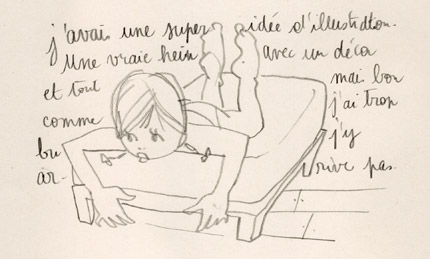 j'avais une super idée d'illustration.
Une vraie hein avec un décor
et tout mais bon
comme j'ai trop
bu j'y
ar- rive pas.